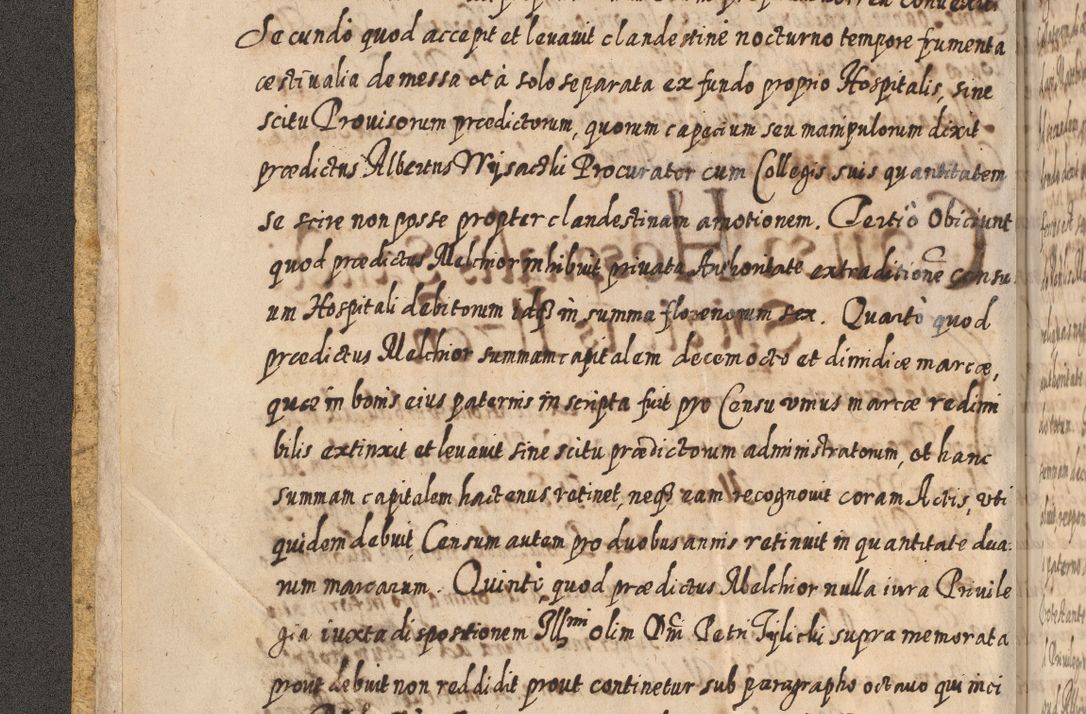 Secundo quod accepit et levavit clandestine nocturno tempore frumenta
æstivalia de messa et à solo separata ex fundo proprio Hospitalis, sine
scitu Provisorum prædictorum, quorum capecium seu manipulorum dixit
prædictus Albertus Wysacski Procurator cum Collegis suis quantitatem
se scire non posse propter clandestinam amotionem. Tertiò Obiciunt
quod prædictus Melchior inhibuit privata Authoritate extraditionē censu
um Hospitali debitorum idq; in summa florenorum sex. Quartò quod
prædictus Melchior summam capitalem decem octo et dimidiæ marcæ,
quæ in bonis eius paternis inscripta fuit pro Censu unius marcæ redimi
bilis extinxit et levavit sine scitu prædictorum administratorum, et hanc
summam capitalem hactenus retinet, neq; eam recognovit coram Actis, uti
quidem debuit, Censum autem pro duobus annis retinuit in quantitate dua:
rum marcarum. Quintò, quod prædictus Melchior nulla iura Privile
gia iuxta dispositionem Illmi olim Dni Petri Tylicki supra memorata
prout debuit non reddidit prout continetur sub paragrapho octavo qui inci